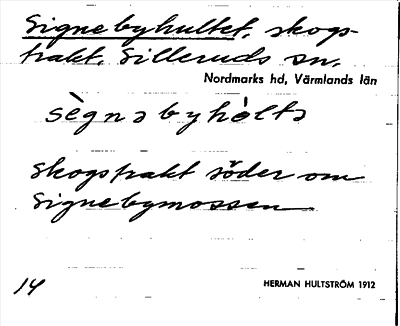 Signebyhultet, skogs-
trakt, Silleruds sn,
Nordmarks hd, Värmlands län
sègnəbyhòltə
Skogstrakt söder om
Signebymossen
14
HERMAN HULTSTRÖM 1912